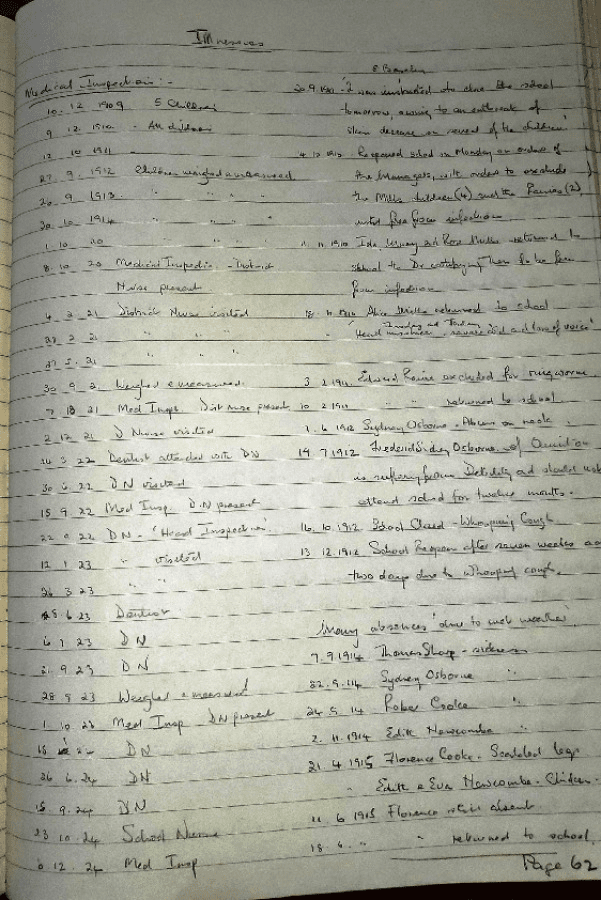 Illnesses
Medical Inspection :-
10. 12 1909 5 Children
9 12. 1910 - All children
12 10 1911
27. 9. 1912 Children weighed & measured
20. 9 1913 " " "
30. 10 1914 " " "
1. 10 20 " "
8. 10. 20 Medical Inspectio - District
Nurse present
4. 2 21 District Nurse visited
" "
27. 5. 21 " "
30 9 21 Weighed & measured
7 21 Med Insp. Dist nurse present
2. 12 21 D Nurse visited
3 22 Dentist attended with DN
30 6. 22 DN visited
15 9. 22 Med Insp D.N present
22 9 22 DN - "Head Inspection
12 1 23 " visited
26 3. 23 " "
6. 23 Dentist
6 7 23 DN
21. 9. 23 DN
28 9 23 Weighed & measured
1. 10 23 Med Insp DN present
DN
26 6. 24 DN
15. 9. 24 DN
23 10. 24 School Nurse
12. 24 Med Insp
20 9. 1910 - "I was instructed to close the school
tomorrow, owing to an outbreak of
skin disease on several of the children"
Reopened school on Monday on orders of
the Managers, with orders to exclude
the Mills children (4) and the (2)
until free from infection
11. 1910 Ida and Rose Mills returned to
school the Dr certifying them to be free
from infection
10. 1910 Alice Mills returned to school
" severe cold and loss of voice"
3 2. 1911. Edward excluded for ringworm
10 2 1911 " " returned to school.
1. 6 1912 Sydney Osborne - Abcess on neck.
19 7 1912 Frederick Sidney Osborne of
is suffering from Debility and should not
attend school for twelve months.
16. 10. 1912 School Closed - Whooping Cough
13 12. 1912 School Reopen after seven weeks and
two days due to whooping cough.
Many absences 'due to wet weather'
7. 9. 1914 Thomas Sharp - sickness
22. 5. 14 Sydney Osborne "
24. 5. 14 Cooke "
2. 11. 1914 Edith Newcombe "
21. 4 1915 Florence Cooke - Scalded legs
" Edith & Eva Newcombe - Chicken-
11. 6 1915 Florence still absent
18. 6. " " returned to school.
Page 62